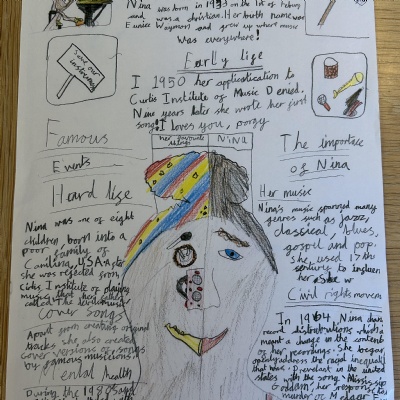 Nina was born in 1933 on the 1st of Febury
and was a christian. Her birth name was
Eunice Waymon and grew up where music
was everywhere!
Early life
I 1950 her application to
Curtis Institute of Music Denied.
Nine years later she wrote her first
song! I loves you, porgy
Save our
instruments
Famous
Events
her favourite
things
NiNa
The importace
of Nina
Heard life
Nina was one of eight
children, born into a
poor family of
Carolina, USA
she was rejected from
Institute of playing
music
called The
cover songs
Apart from creating original
tracks she also created
cover versions of songs
by famous musicians.
Mental health
During the 1980s
Her music
Nina's music spanned many
genres such as jazz,
classical, blues,
gospel and pop.
She used 17th
century to influen
her
Civil rights movem
In 1964, Nina
record distributions which
meant a change in the contents
of her recordings. She began
openly address the racial inequality
that was prevelant in the united
states with the song Mississip
Goddam, her response to
murder of Medgar E